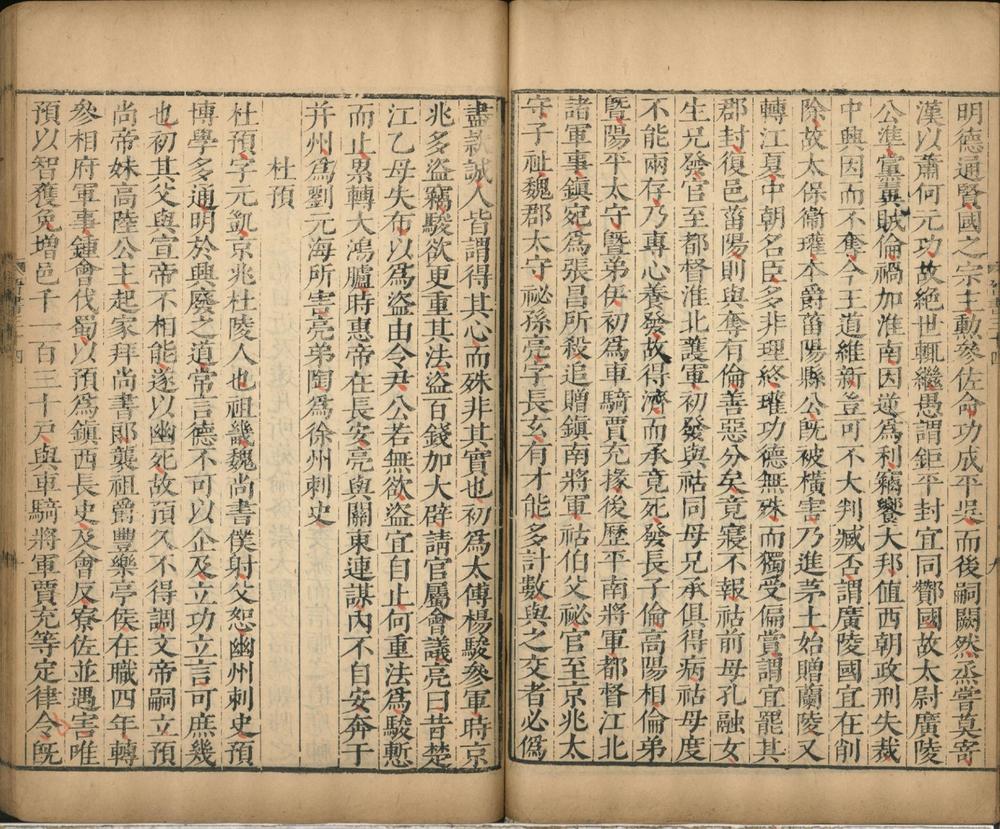 明德通賢國之宗主勳參佐命功成平吳而後嗣闕然烝嘗莫寄
漢以蕭何元功故絕世輒繼愚謂鉅平封宜同酇國故太尉廣陵
公準黨翼賊倫禍加淮南因逆爲利竊饗大邦值西朝政刑失裁
中興因而不奪今王道維新豈可不大判臧否謂廣陵國宜在削
除故太保衞瓘本爵菑陽縣公旣被橫害乃進茅土始贈蘭陵又
轉江夏中朝名臣多非理終瓘功德無殊而獨受偏賞謂宜罷其
郡封復邑菑陽則與奪有倫善惡分矣竟寢不報祜前母孔融女
生兄發官至都督淮北護軍初發與祜同母兄承俱得病祜母度
不能兩存乃專心養發故得濟而承竟死發長子倫高陽相倫弟
暨陽平太守暨弟伊初爲車騎賈充掾後歷平南將軍都督江北
諸軍事鎮宛爲張昌所殺追贈鎮南將軍祜伯父祕官至京兆太
守子祉魏郡太守祕孫亮字長玄有才能多計數與之交者必僞
盡欵誠人皆謂得其心而殊非其實也初爲太傅楊駿參軍時京
兆多盜竊駿欲更重其法盜百錢加大辟請官屬會議亮曰昔楚
江乙母失布以爲盜由令尹公若無欲盜宜自止何重法爲駿慙
而止累轉大鴻臚時惠帝在長安亮與關東連謀內不自安奔于
并州爲劉元海所害亮弟陶爲徐州刺史
杜預
杜預字元凱京兆杜陵人也祖畿魏尚書僕射父恕幽州刺史預
博學多通明於興廢之道常言德不可以企及立功立言可庶幾
也初其父與宣帝不相能遂以幽死故預久不得調文帝嗣立預
尚帝妹高陸公主起家拜尚書郎襲祖爵豐樂亭侯在職四年轉
參相府軍事鍾會伐蜀以預爲鎮西長史及會反寮佐並遇害唯
預以智獲免增邑千一百三十戸與車騎將軍賈充等定律令旣